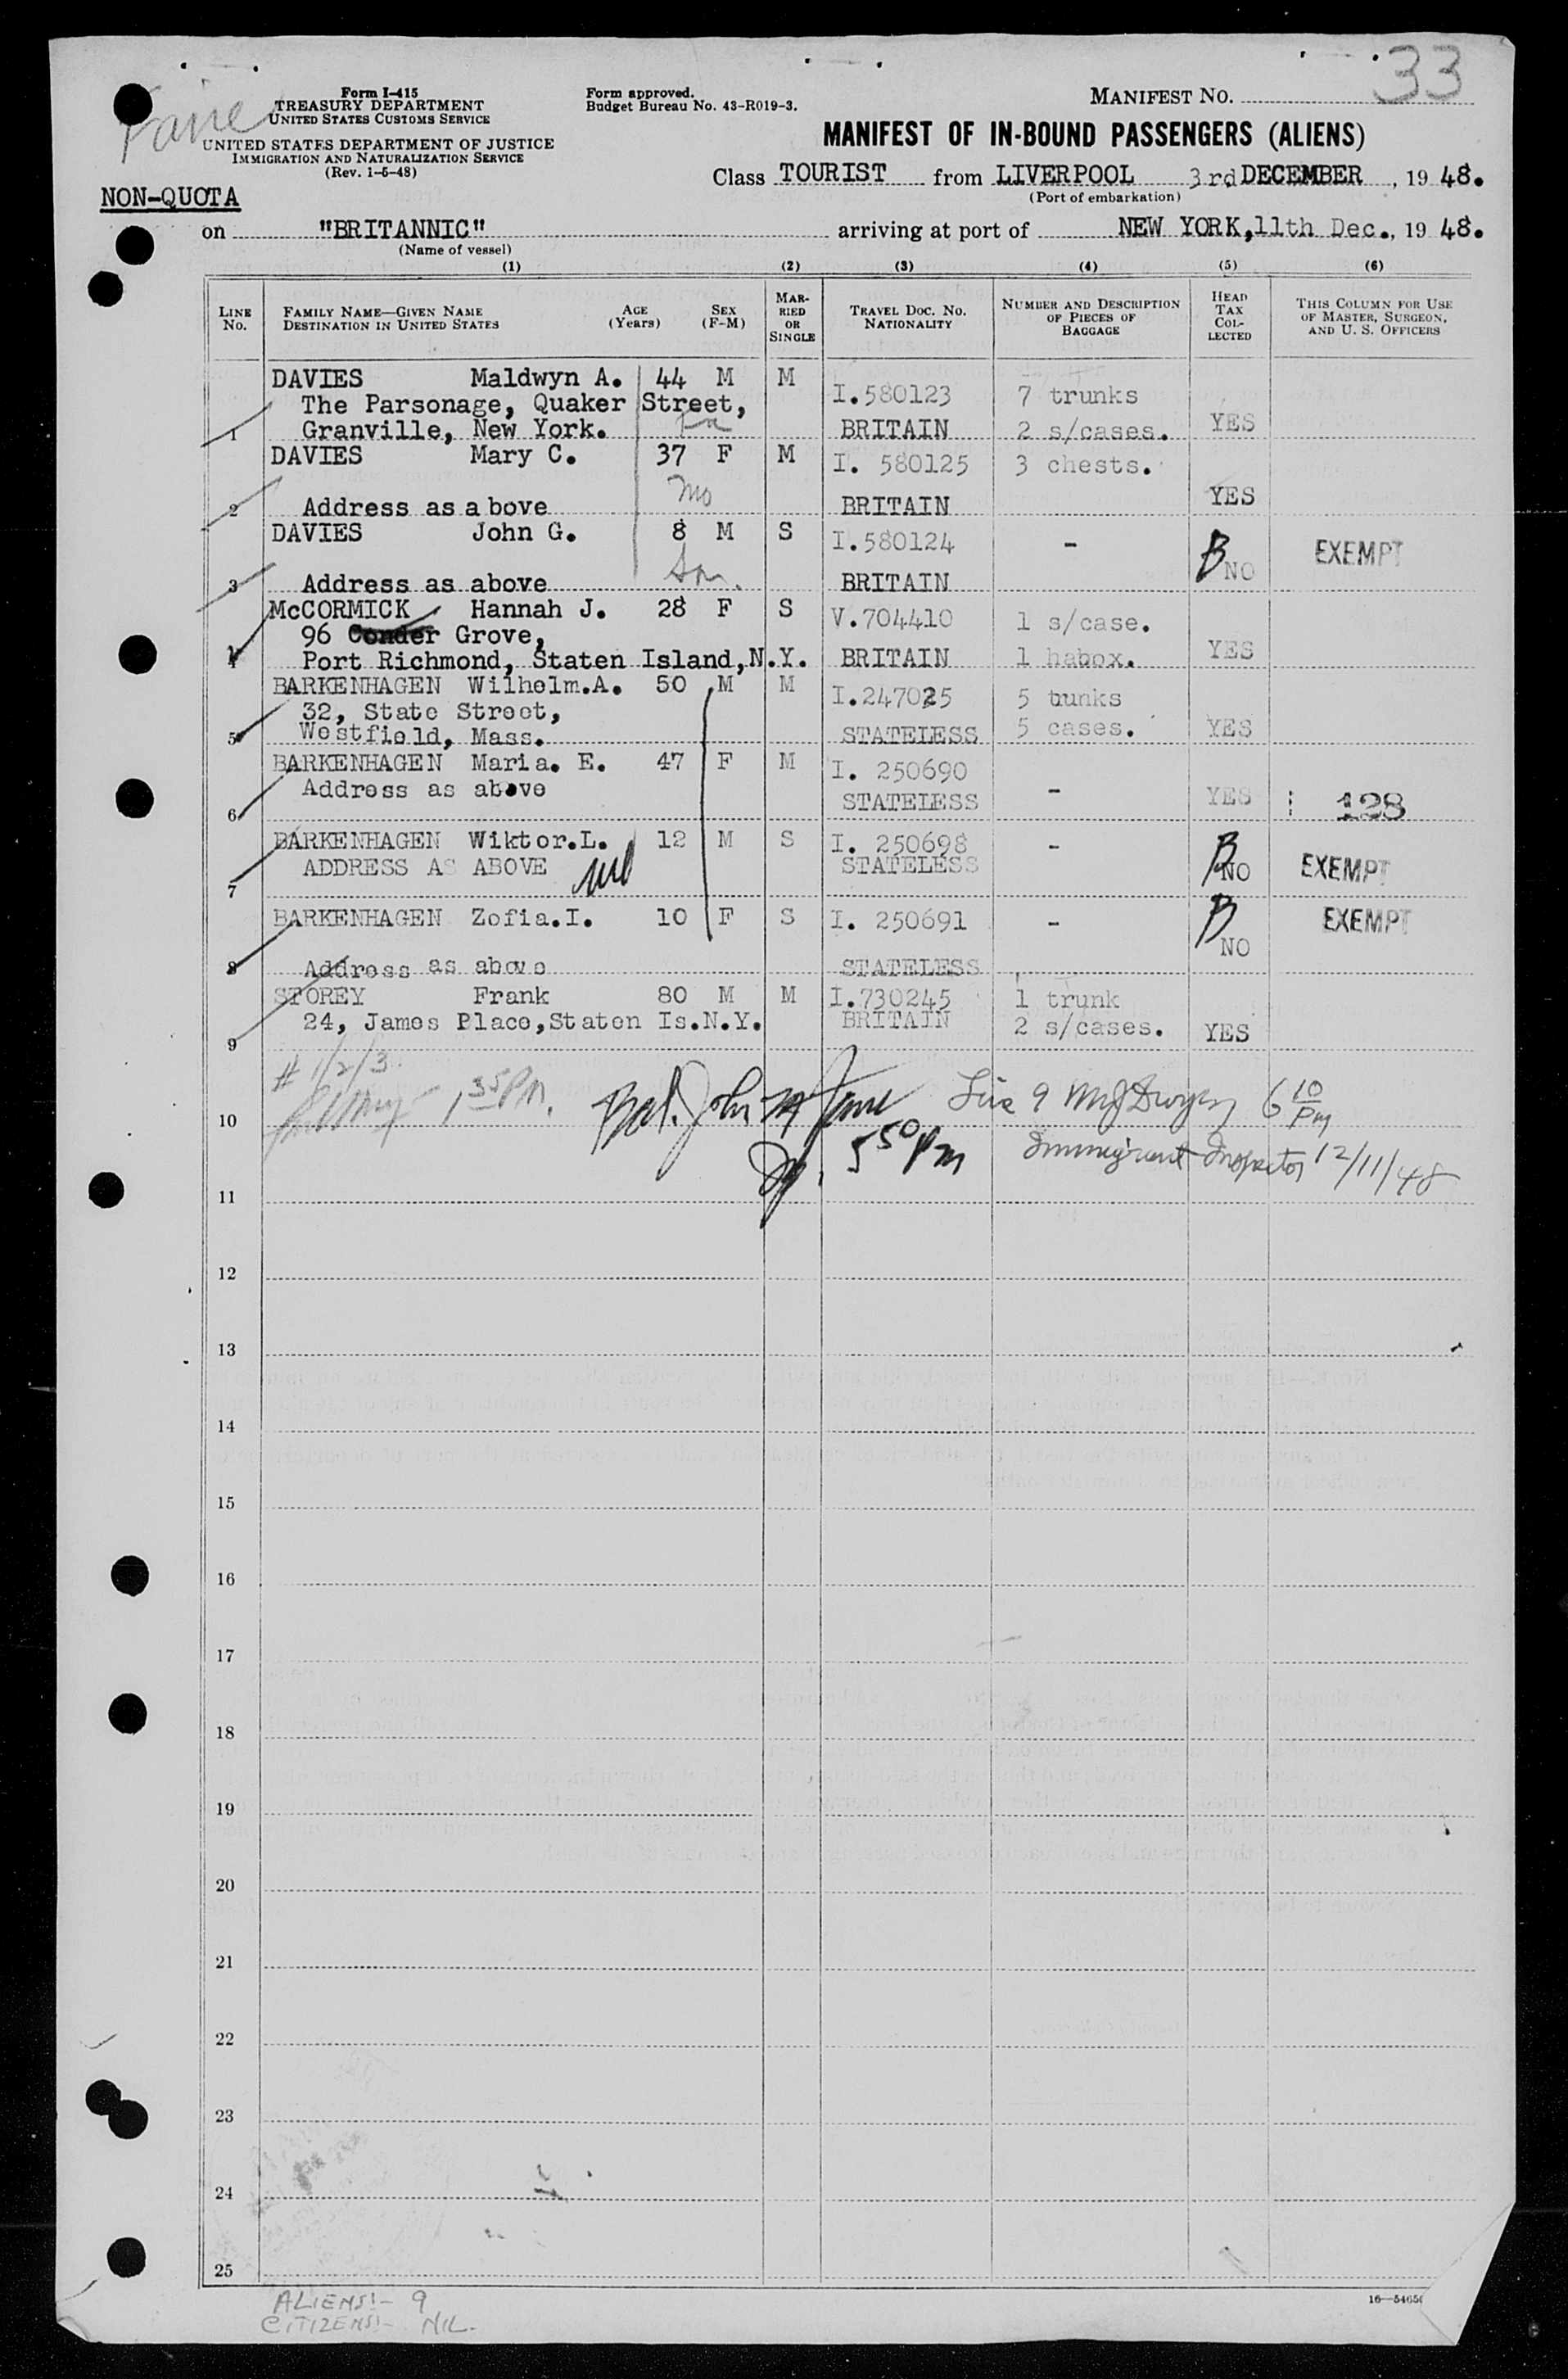 33
Form I-415
TREASURY DEPARTMENT
UNITED STATES CUSTOMS SERVICE
UNITED STATES DEPARTMENT OF JUSTICE
IMMIGRATION AND NATURALIZATION SERVICE
(Rev. 1-5-48)
Form approved.
Budget Bureau No. 43-R019-3.
MANIFEST NO.
MANIFEST OF IN-BOUND PASSENGERS (ALIENS)
NON-QUOTA
Class TOURIST from LIVERPOOL 3rd DECEMBER, 19 48.
(Port of embarkation)
on "BRITANNIC" arriving at port of NEW YORK, 11th Dec., 19 48.
(Name of vessel)
(1) (2) (3) (4) (5) (6)
LINE No. FAMILY NAME—GIVEN NAME DESTINATION IN UNITED STATES AGE (Years) SEX (F-M) MARRIED OR SINGLE TRAVEL DOC. NO. NATIONALITY NUMBER AND DESCRIPTION OF PIECES OF BAGGAGE HEAD TAX COLLECTED THIS COLUMN FOR USE OF MASTER, SURGEON, AND U. S. OFFICERS
DAVIES Maldwyn A. 44 M M I.580123 7 trunks
The Parsonage, Quaker Street,
1 Granville, New York. Fa BRITAIN 2 s/cases. YES
DAVIES Mary C. 37 F M I. 580125 3 chests.
Mo
2 Address as above BRITAIN YES
DAVIES John G. 8 M S I.580124 - B NO EXEMPT
3 Address as above Son. BRITAIN
McCORMICK Hannah J. 28 F S V.704410 1 s/case.
96 Conder Grove,
4 Port Richmond, Staten Island, N.Y. BRITAIN 1 habox. YES
BARKENHAGEN Wilhelm.A. 50 M M I.247025 5 tunks
32, State Street,
5 Westfield, Mass. STATELESS 5 cases. YES
BARKENHAGEN Maria. E. 47 F M I. 250690
Address as above STATELESS - YES 128
6
BARKENHAGEN Wiktor.L. 12 M S I. 250698 -
ADDRESS AS ABOVE STATELESS B NO EXEMPT
7
BARKENHAGEN Zofia.I. 10 F S I. 250691 - B NO EXEMPT
8 Address as above STATELESS
STOREY Frank 80 M M I.730245 1 trunk
24, James Place, Staten Is. N.Y. BRITAIN 2 s/cases. YES
9
# 1/2/3.
1 35 PM.
John
Line 9 6 10 PM
10
5 50 PM
Immigrant Inspector 12/11/48
11
12
13
14
15
16
17
18
19
20
21
22
23
24
25
ALIENS:- 9
CITIZENS:- NIL.